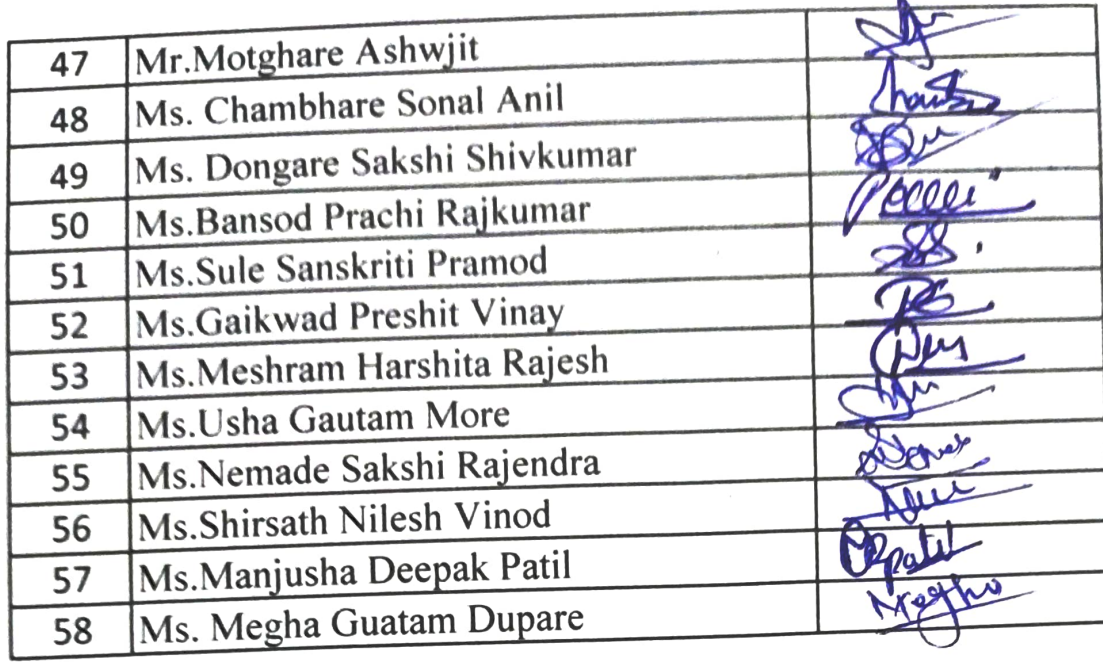 47 Mr.Motghare Ashwjit
48 Ms. Chambhare Sonal Anil
49 Ms. Dongare Sakshi Shivkumar
50 Ms.Bansod Prachi Rajkumar
51 Ms.Sule Sanskriti Pramod
52 Ms.Gaikwad Preshit Vinay
53 Ms.Meshram Harshita Rajesh
54 Ms.Usha Gautam More
55 Ms.Nemade Sakshi Rajendra
56 Ms.Shirsath Nilesh Vinod
57 Ms.Manjusha Deepak Patil
58 Ms. Megha Guatam Dupare Megha